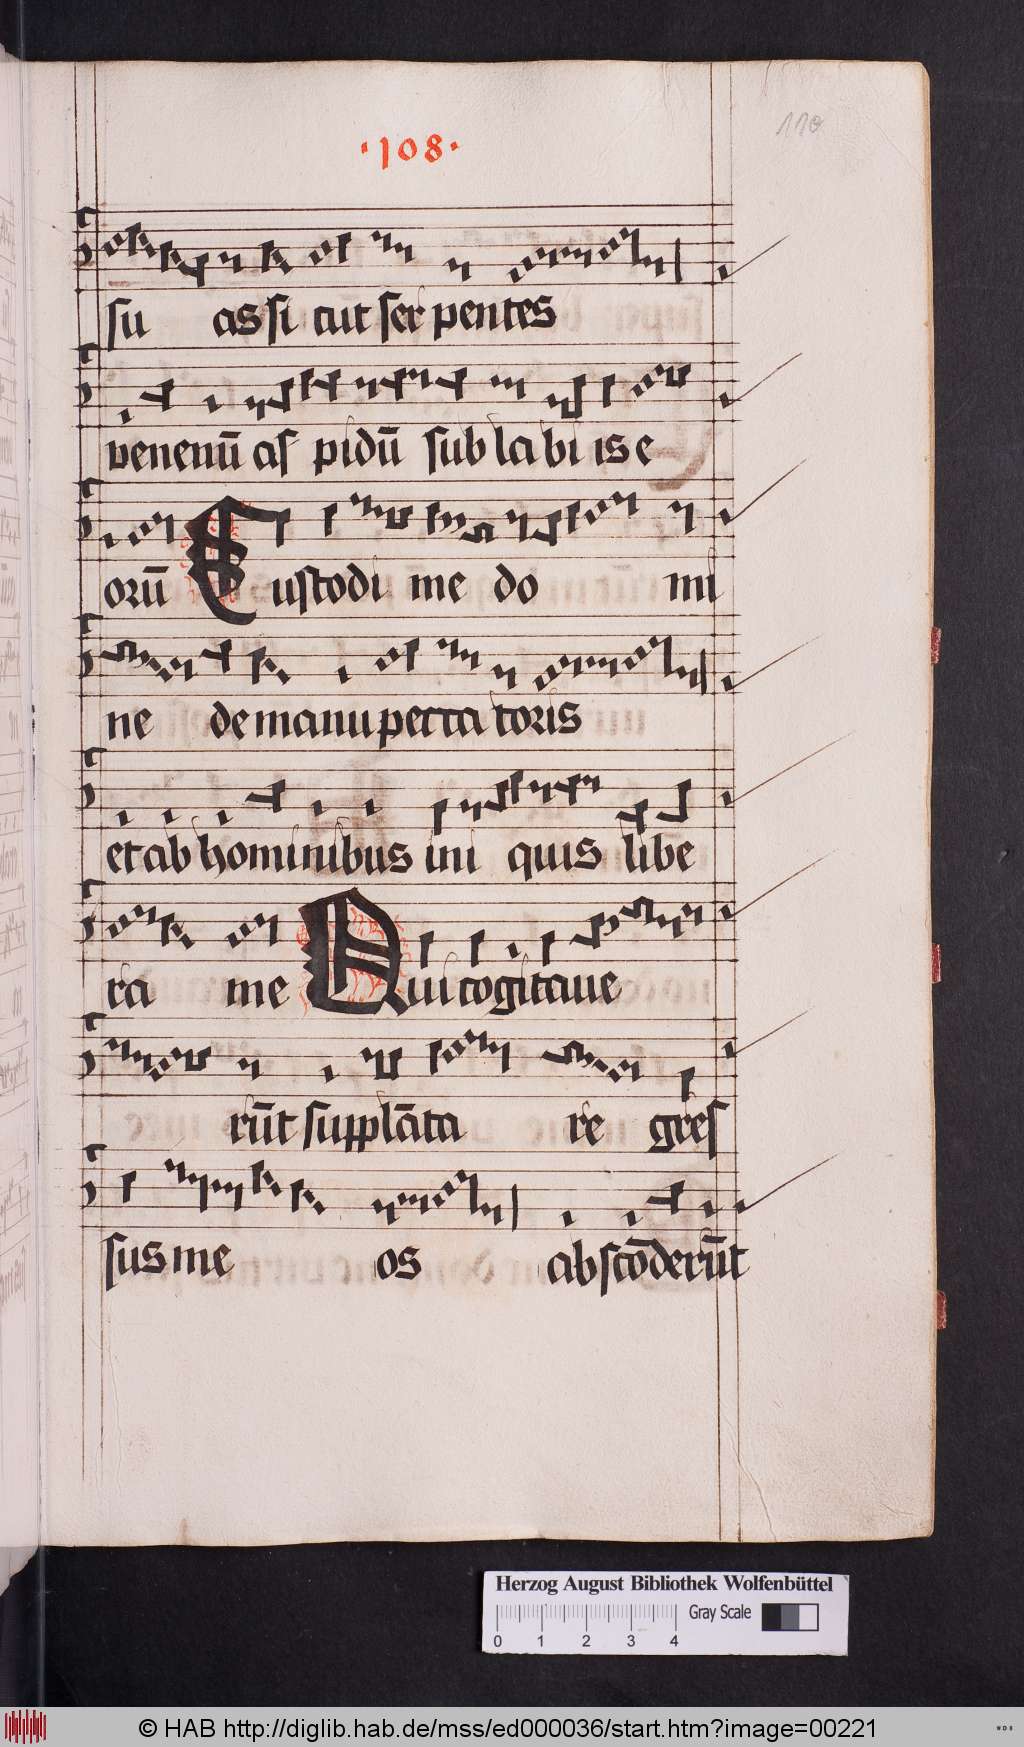 110
·108·
su as si cut ser pentes
venenū as pidū sub la bi is e
orū Custodi me do mi
ne de manu pecca toris
et ab hominibus ini quis libe
ra me Qui cogitave
rūt supplāta re gres
sus me os abscōderūt
Herzog August Bibliothek Wolfenbüttel
Gray Scale
0 1 2 3 4
© HAB http://diglib.hab.de/mss/ed000036/start.htm?image=00221